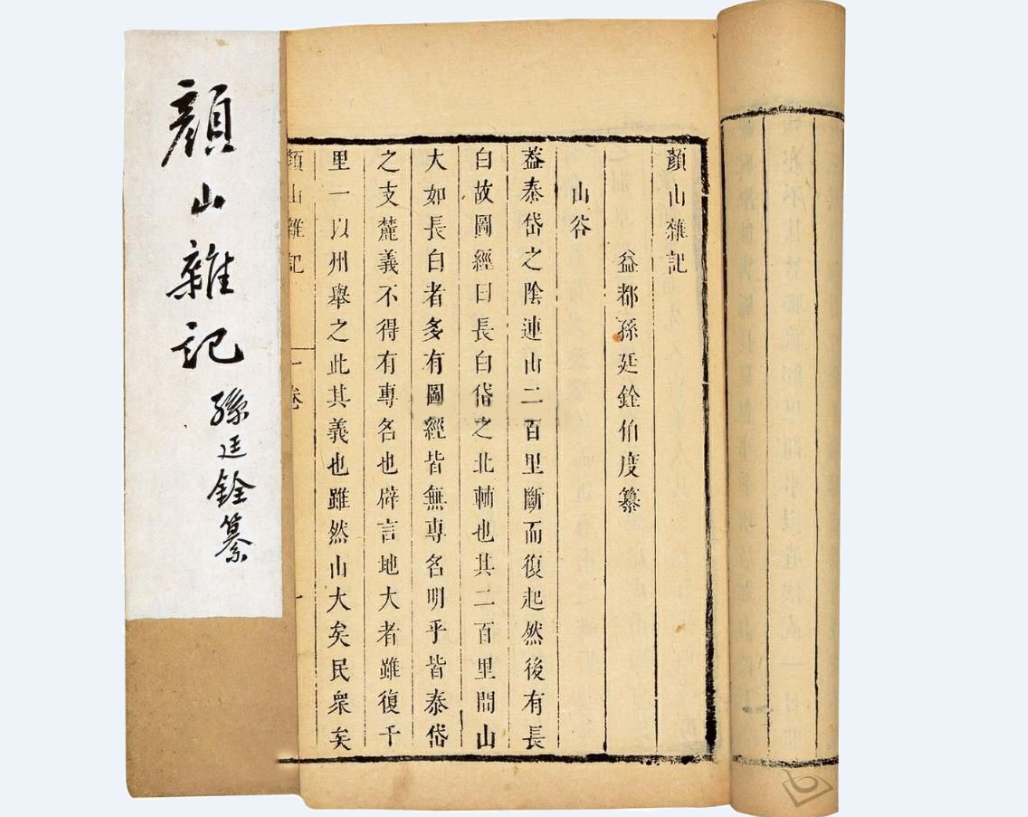 顔山雜記
益都孫廷銓伯度纂
山谷
葢泰岱之陰連山二百里斷而復起然後有長
白故圖經曰長白岱之北輔也其二百里間山
大如長白者多有圖經皆無專名明乎皆泰岱
之支麓義不得有專名也辟言地大者雖復千
里一以州舉之此其義也雖然山大矣民衆矣
顔山雜記 一卷 一
顔山雜記
孫廷銓纂